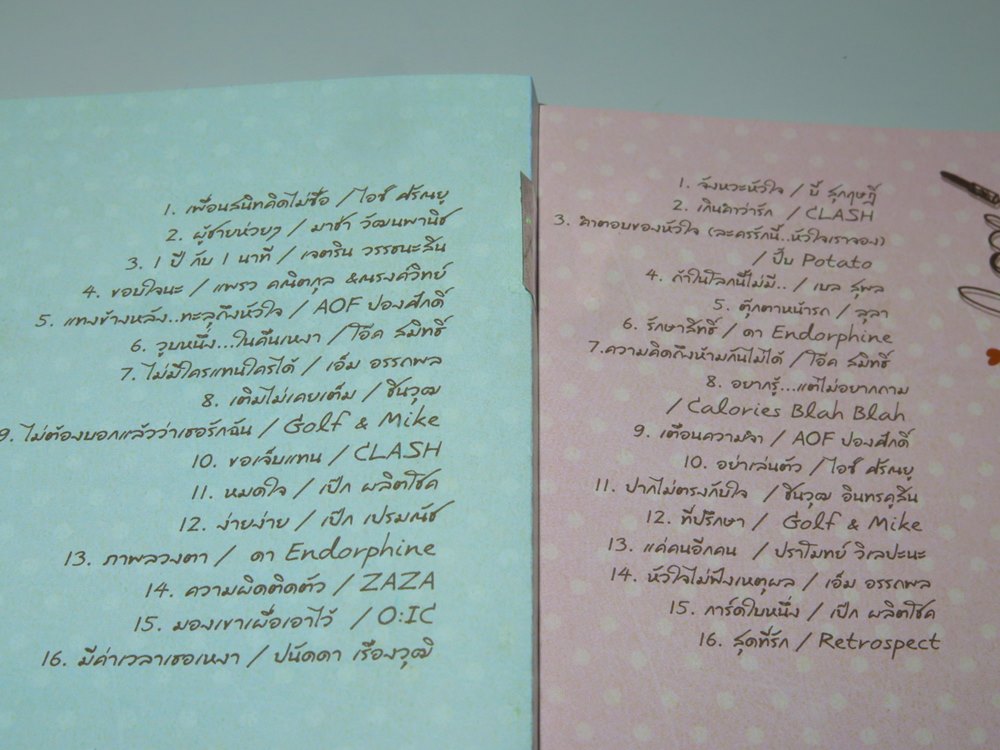 1. เพื่อนสนิทคิดไม่ซื่อ / ไอซ์ ศรัณยู
2. ผู้ชายห่วยๆ / มาช่า วัฒนพานิช
3. 1 ปี กับ 1 นาที / เจตริน วรรธนะสิน
4. ขอบใจนะ / แพรว คณิตกุล &ณรงค์วิทย์
5. แทงข้างหลัง..ทะลุถึงหัวใจ / AOF ปองศักดิ์
6. วูบหนึ่ง...ในคืนเหงา / โอ๊ค สมิทธิ์
7. ไม่มีใครแทนใครได้ / เอ็ม อรรถพล
8. เติมไม่เคยเต็ม / ชินวุฒ
9. ไม่ต้องบอกแล้วว่าเธอรักฉัน / Golf & Mike
10. ขอเจ็บแทน / CLASH
11. หมดใจ / เป๊ก ผลิตโชค
12. ง่ายง่าย / เป๊ก เปรมณัช
13. ภาพลวงตา / ดา Endorphine
14. ความผิดติดตัว / ZAZA
15. มองเขาเผื่อเอาไว้ / O:IC
16. มีค่าเวลาเธอเหงา / ปนัดดา เรืองวุฒิ
1. จังหวะหัวใจ / บี้ สุกฤษฎิ์
2. เกินคำว่ารัก / CLASH
3. คำตอบของหัวใจ (ละครรักนี้..หัวใจเราจอง)
/ ปั๊บ Potato
4. ถ้าในโลกนี้ไม่มี.. / เบล สุพล
5. ตุ๊กตาหน้ารถ / ลุลา
6. รักษาสิทธิ์ / ดา Endorphine
7.ความคิดถึงห้ามกันไม่ได้ / โอ๊ค สมิทธิ์
8. อยากรู้...แต่ไม่อยากถาม
/ Calories Blah Blah
9. เตือนความจำ / AOF ปองศักดิ์
10. อย่าเล่นตัว / ไอซ์ ศรัณยู
11. ปากไม่ตรงกับใจ / ชินวุฒ อินทรคูสิน
12. ที่ปรึกษา / Golf & Mike
13. แค่คนอีกคน / ปราโมทย์ วิเลปะนะ
14. หัวใจไม่ฟังเหตุผล / เอ็ม อรรถพล
15. การ์ดใบหนึ่ง / เป๊ก ผลิตโชค
16. สุดที่รัก / Retrospect